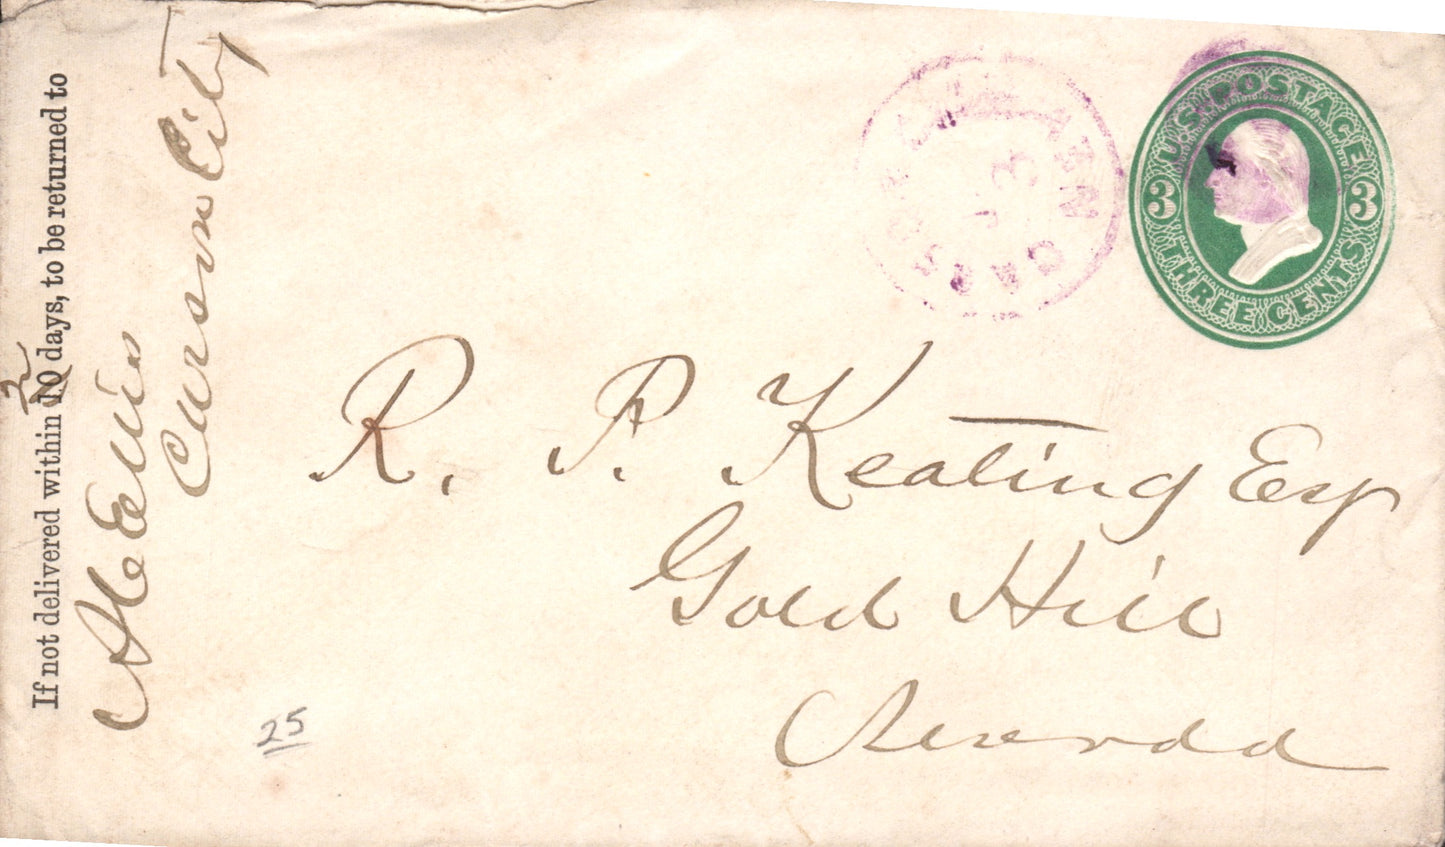 If not delivered within 10 days, to be returned to
2
Carson City
U.S. POSTAGE
3 3
THREE CENTS
CARSON CITY NEV
3
R. P. Keating Esq
Gold Hill
Nevada
25